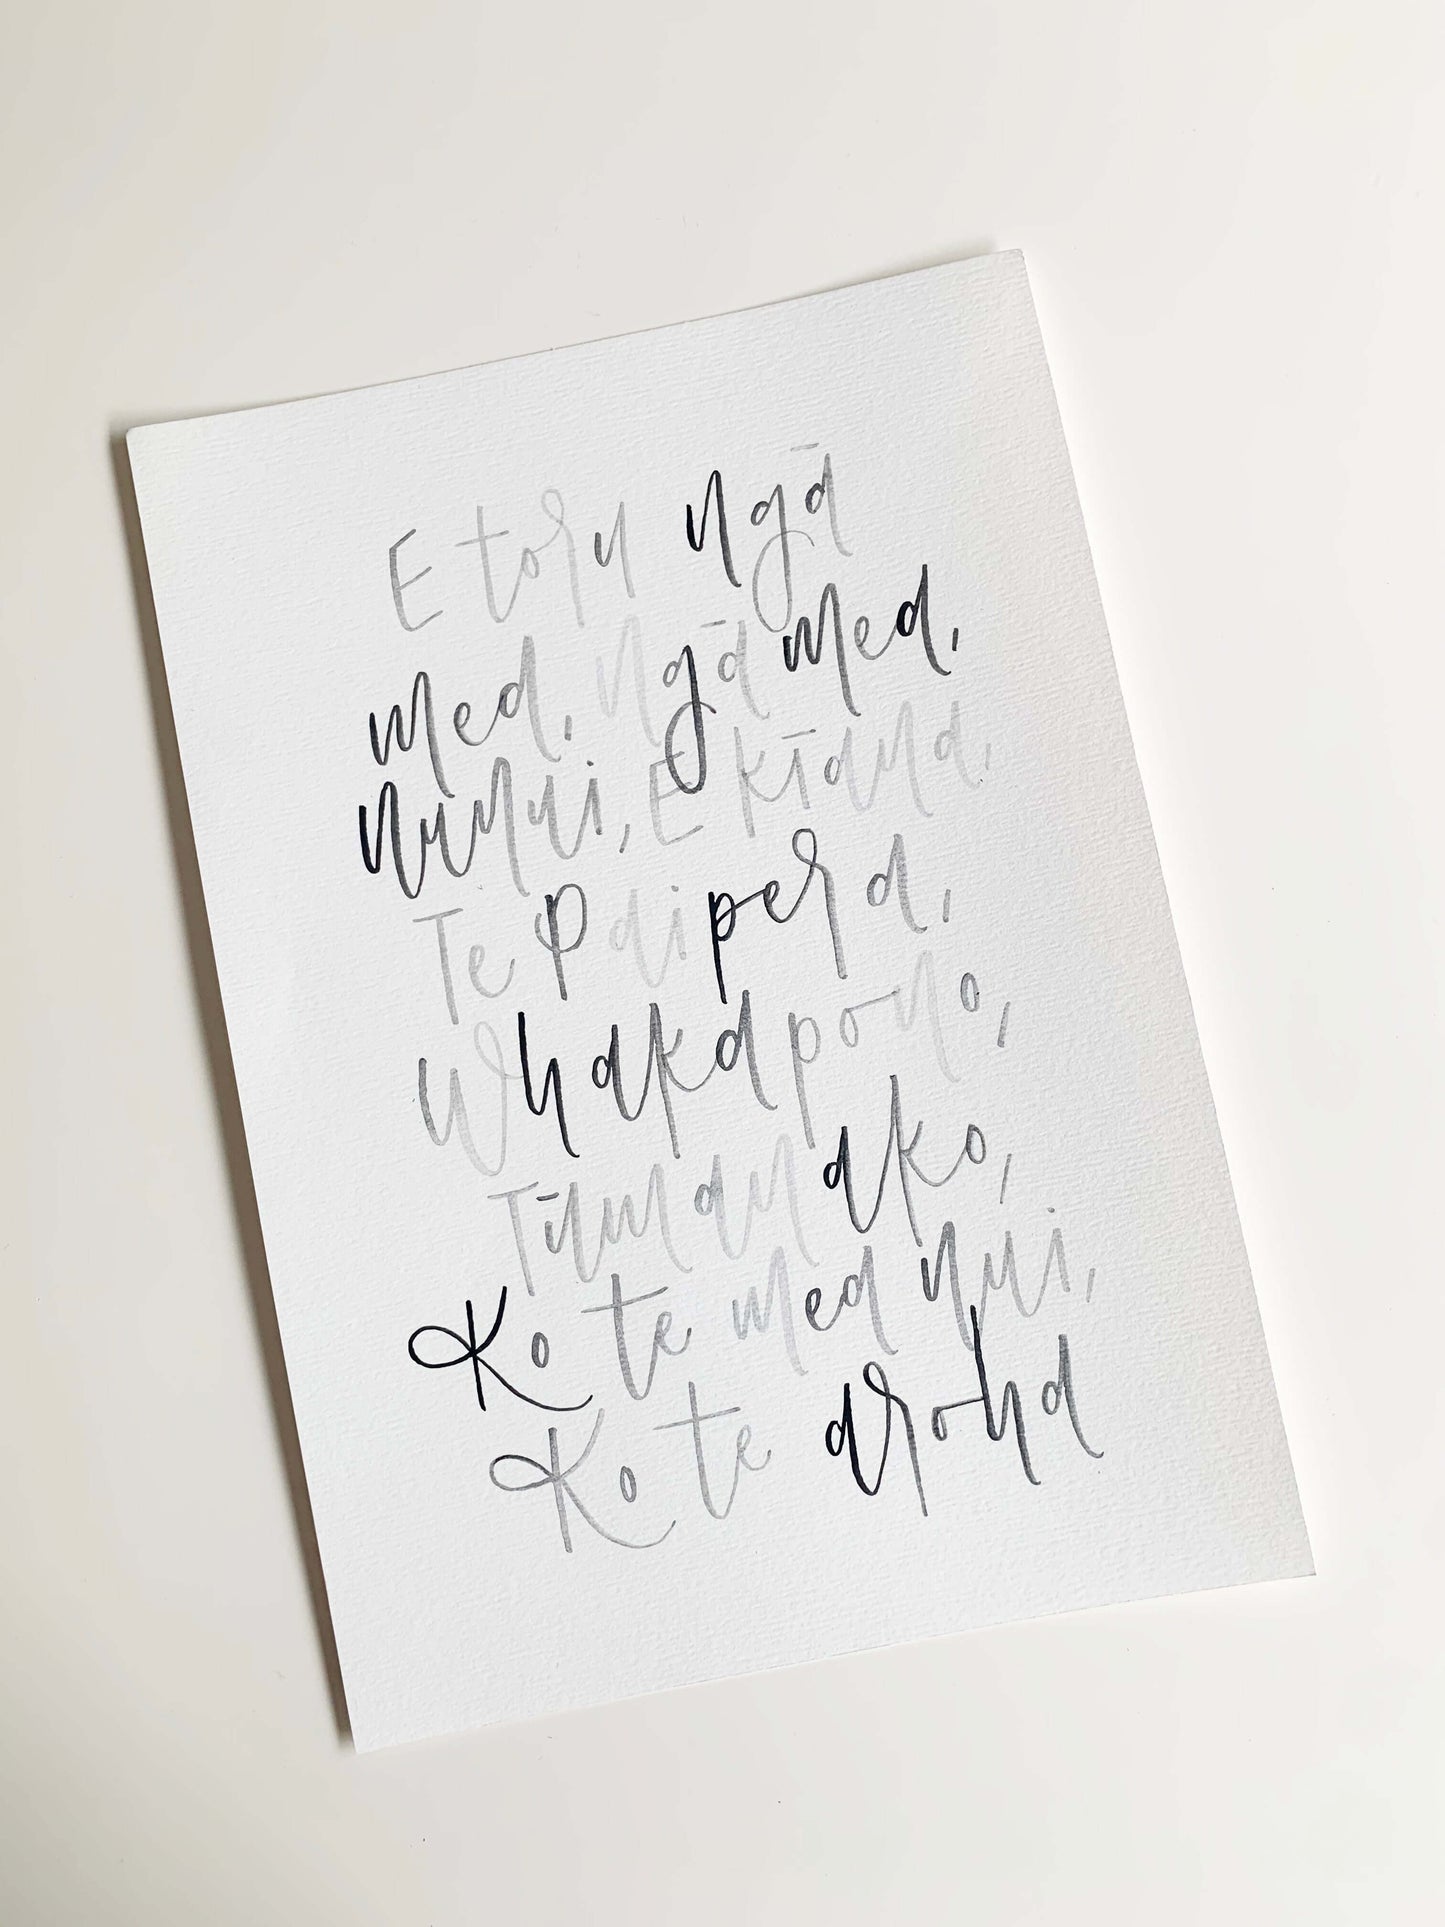 E toru ngā
mea, ngā mea,
nunui, E kīana,
Te Paipera,
Whakapono,
Tūmanako,
Ko te mea nui,
Ko te aroha